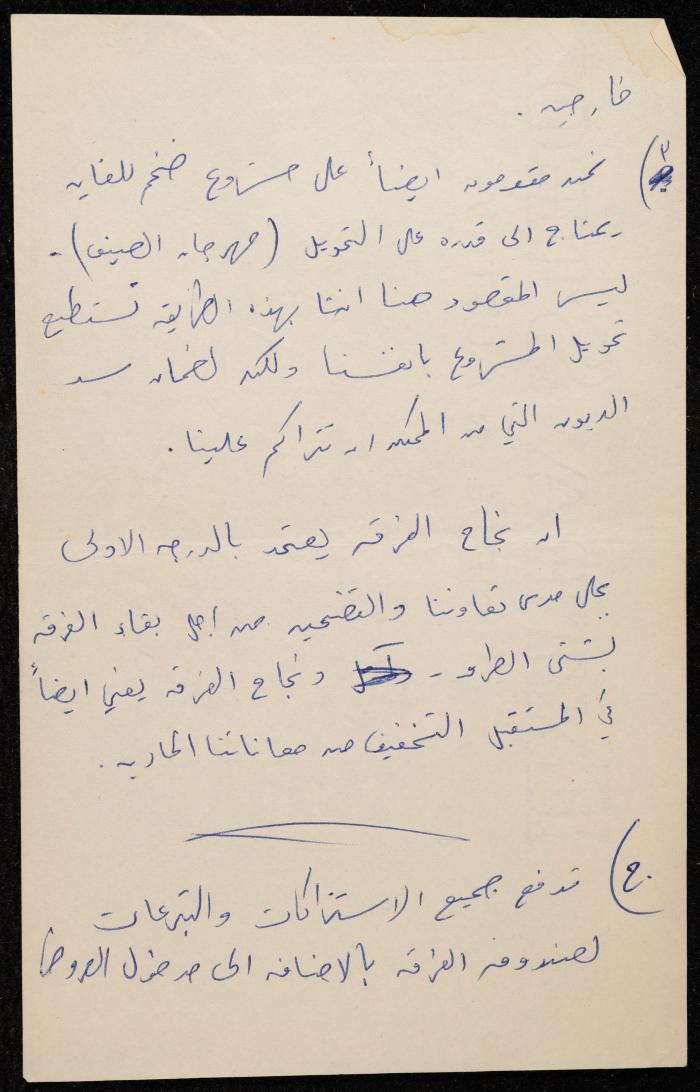 خارجيه .
٣) نحن مقدمون ايضاً على مشروع ضخم للغايه
يحتاج الى قدره على التمويل (مهرجان الصيف) .
ليس المقصود هنا اننا بهذه الطريقه نستطيع
تمويل المشروع بانفسنا ولكن لضمان سد
الديون التي من الممكن ان تتراكم علينا .
ان نجاح الفرقه يعتمد بالدرجه الاولى
على مدى تعاوننا والتضحيه من اجل بقاء الفرقه
بشتى الطرق - ونجاح الفرقه يعني ايضاً
في المستقبل التخفيف من معاناتنا الماديه .
ج) تدفع جميع الاشتراكات والتبرعات
لصندوق الفرقه بالاضافه الى مدخول العروض